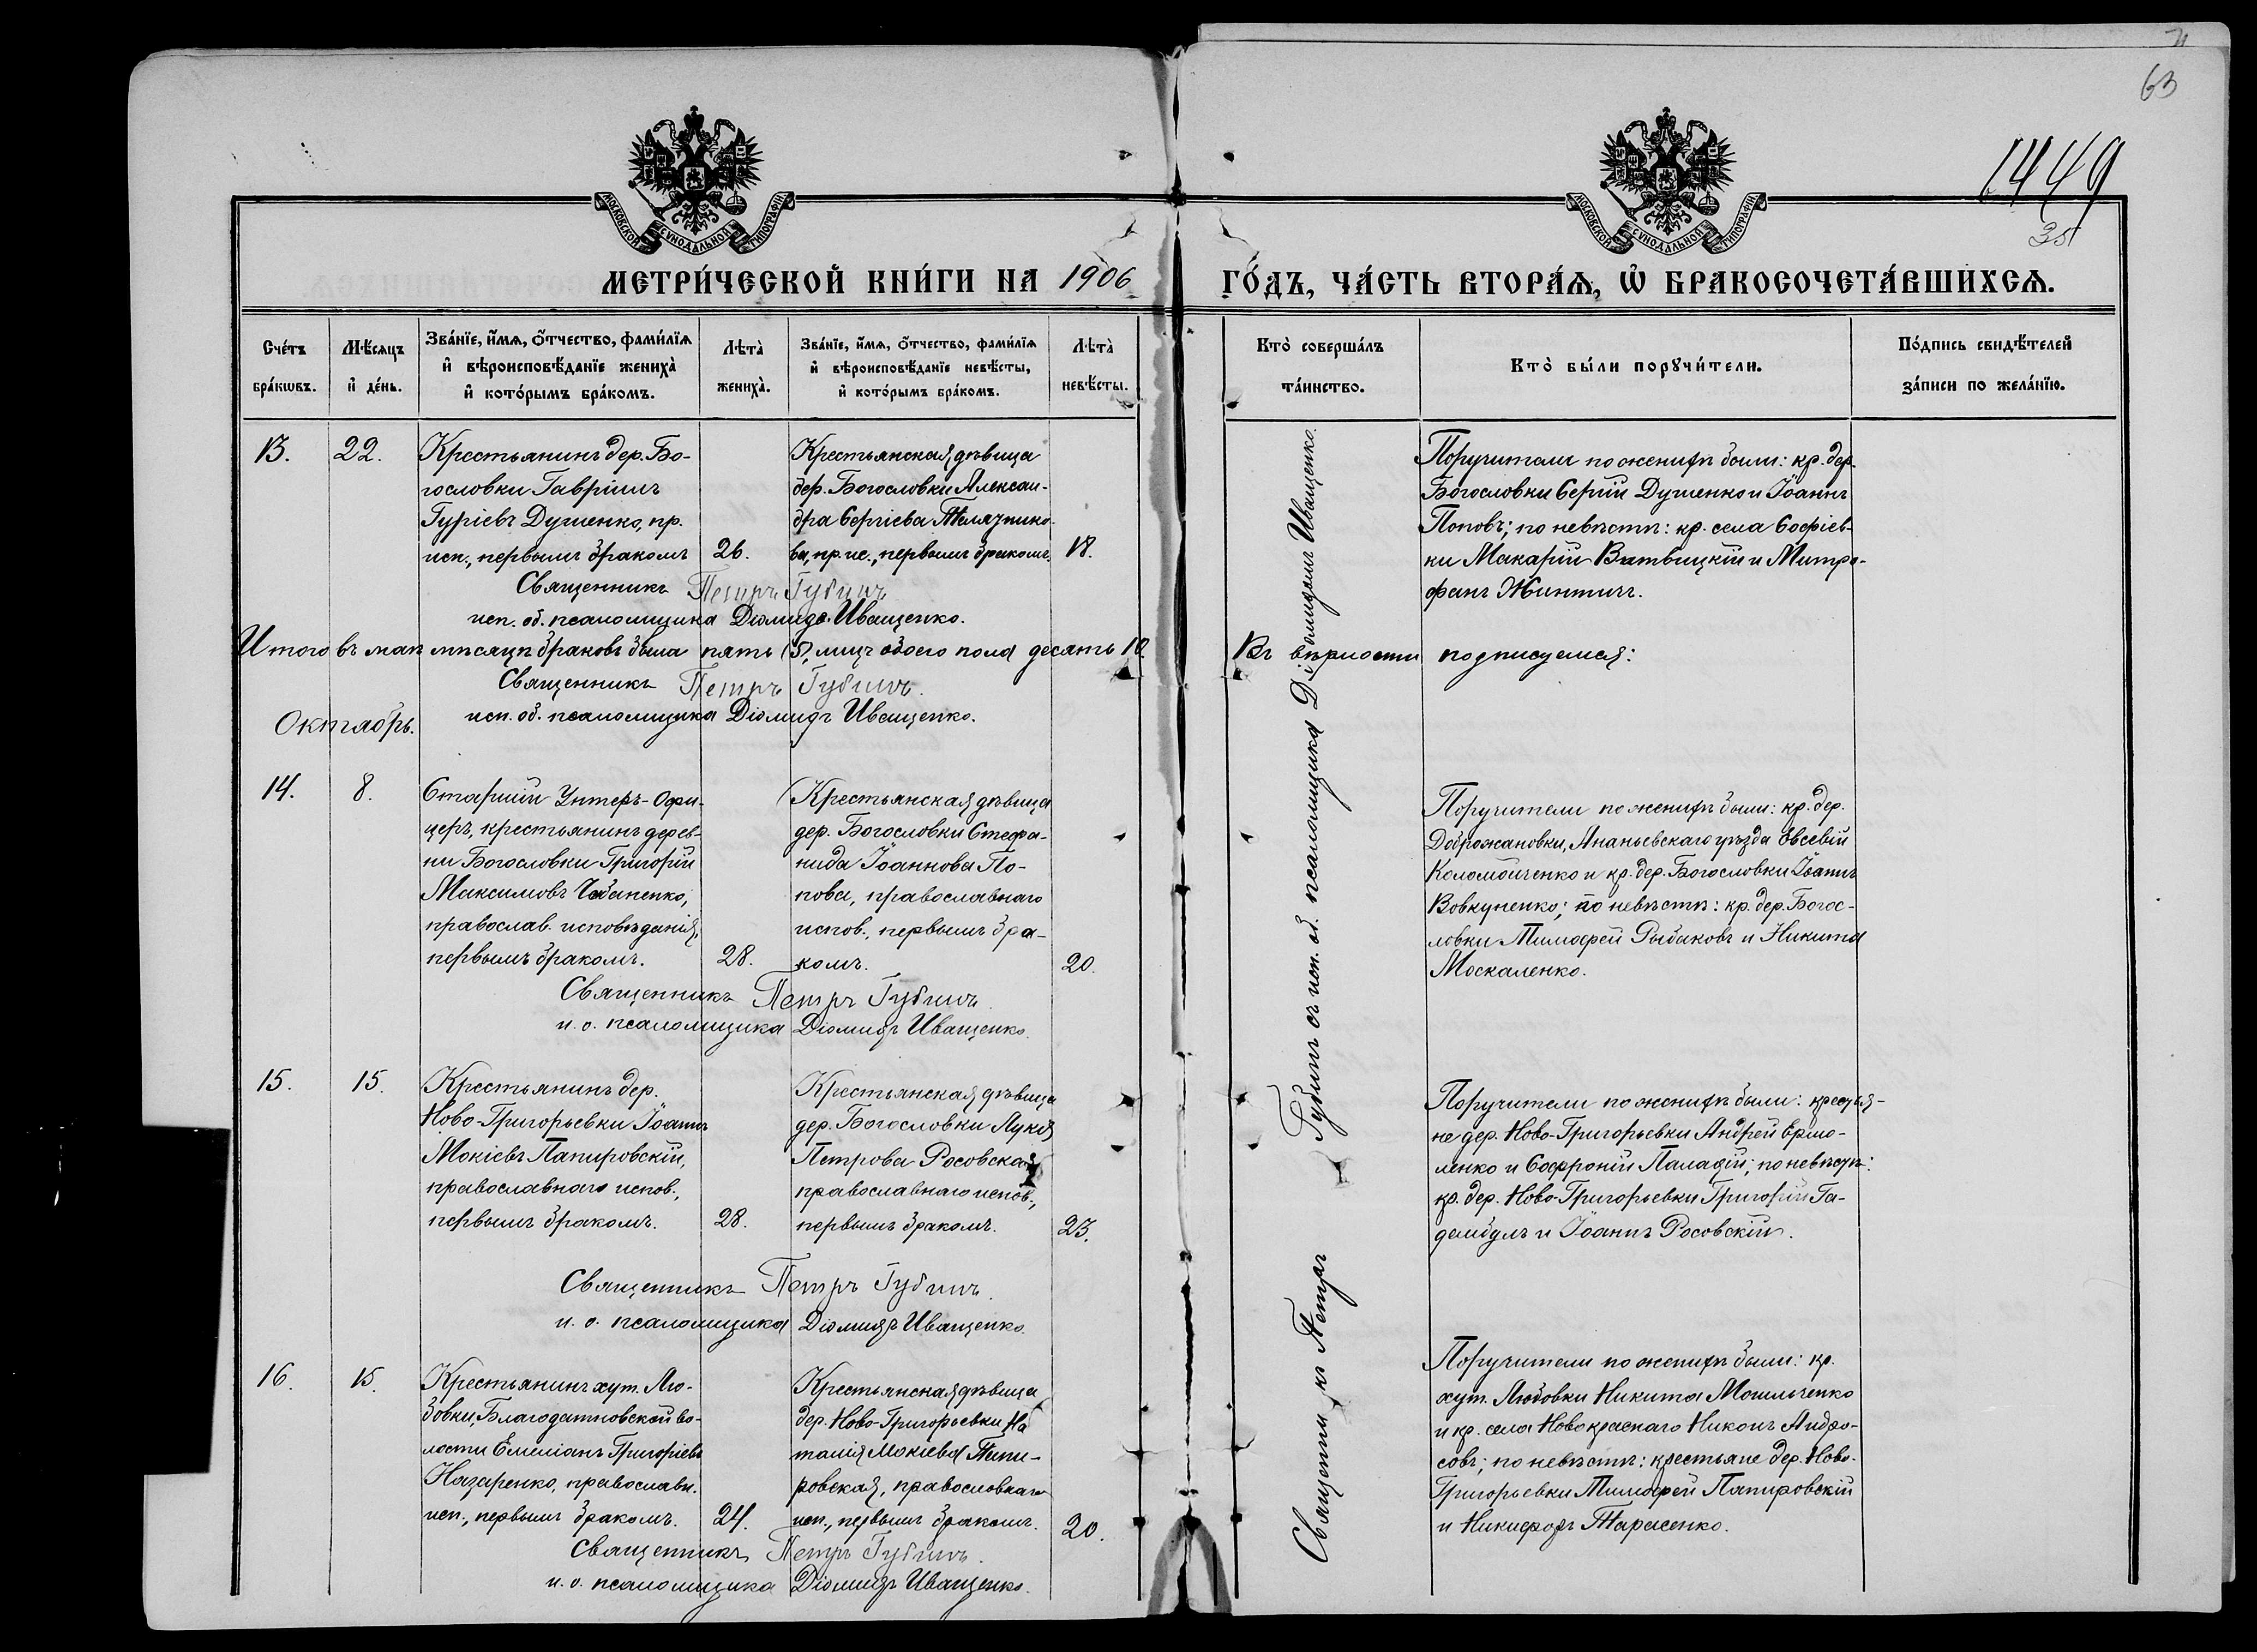 71
63
1449
35
МОСКОВСКОЙ СѴНОДАЛЬНОЙ ТИПОГРАФІИ
МОСКОВСКОЙ СѴНОДАЛЬНОЙ ТИПОГРАФІИ
МЕТРИ́ЧЕСКОЙ КНИ́ГИ НА 1906 ГО́ДЪ, ЧА́СТЬ ВТОРА́Ѧ, Ѡ҆ БРАКОСОЧЕТА́ВШИХСѦ.
Сче́тъ
бра́кѡвъ.
Мѣ́сяцъ
и҆ де́нь.
Зва́нїе, и҆́мѧ, о҆́тчество, фами́лїѧ
и҆ вѣроисповѣ́данїе жениха̀
и҆ кото́рымъ бра́комъ.
Лѣта̀
жениха̀.
Зва́нїе, и҆́мѧ, о҆́тчество, фами́лїѧ
и҆ вѣроисповѣ́данїе невѣ́сты,
и҆ кото́рымъ бра́комъ.
Лѣта̀
невѣ́сты.
Кто̀ соверша́лъ
та́инство.
Кто̀ бы́ли порꙋчи́тели.
По́дпись свидѣ́телей
за́писи по жела́нїю.
13.
22.
Крестьянинъ дер. Бо-
гословки Гавріилъ
Гуріевъ Душенко, пр.
исп., первымъ бракомъ
26.
Крестьянская дѣвица
дер. Богословки Алексан-
дра Сергіева Телячнико-
ва, пр. ис., первымъ бракомъ.
18.
Поручители по женихѣ были: кр. дер.
Богословки Сергій Душенко и Іоаннъ
Поповъ; по невѣстѣ: кр. села Софіев-
ки Макарій Ватвицкій и Митро-
фанъ Жинтич.
Священникъ Петръ Губинъ
исп. об. псаломщика Діомидъ Иващенко.
Итого въ маѣ мѣсяцѣ браковъ было пять (5), лицъ обоего пола десять 10.
Въ вѣрности подписуемся:
Священникъ Петръ Губинъ.
исп. об. псаломщика Діомидъ Иващенко.
Октябрь.
14.
8.
Старшій Унтеръ-Офи-
церъ, крестьянинъ дерев-
ни Богословки Григорій
Максимовъ Чабаненко,
православ. исповѣданія,
первымъ бракомъ.
28.
Крестьянская дѣвица
дер. Богословки Стефа-
нида Іоаннова По-
пова, православнаго
испов., первымъ бра-
комъ.
20.
Поручители по женихѣ были: кр. дер.
Доброжановки, Ананьевскаго уѣзда Евсевій
Коломойченко и кр. дер. Богословки Іоаннъ
Вовкуненко; по невѣстѣ: кр. дер. Богос-
ловки Тимофей Рыбаковъ и Никита
Москаленко.
Священникъ Петръ Губинъ
и. о. псаломщика Діомидъ Иващенко.
15.
15.
Крестьянинъ дер.
Ново-Григорьевки Іоаннъ
Мокіевъ Папировскій,
православнаго испов.,
первымъ бракомъ.
28.
Крестьянская дѣвица
дер. Богословки Лукія
Петрова Росовская
православнаго испов.,
первымъ бракомъ.
23.
Поручители по женихѣ были: крестья-
не дер. Ново-Григорьевки Андрей Ермо-
ленко и Софроній Паладій; по невѣстѣ:
кр. дер. Ново-Григорьевки Григорій Га-
дамбулъ и Іоаннъ Росовскій.
Священникъ Петръ Губинъ.
и. о. псаломщика Діомидъ Иващенко.
16.
15.
Крестьянинъ хут. Лю-
бовки, Благодатновской во-
лости Емеліанъ Григоріевъ
Назаренко, православн.
исп., первымъ бракомъ.
24.
Крестьянская дѣвица
дер. Ново-Григорьевки На
талія Мокіева Папи-
ровская, православнаго
исп., первымъ бракомъ.
20.
Поручители по женихѣ были: кр.
хут. Любовки Никита Могильченко
и кр. села Новокраснаго Никонъ Андро-
совъ; по невѣстѣ: крестьяне дер. Ново-
Григорьевки Тимофей Папировскій
и Никифоръ Тарасенко.
Священникъ Петръ Губинъ.
и. о. псаломщика Діомидъ Иващенко.
Священникъ Петръ Губинъ съ исп. об. псаломщика Діомидомъ Иващенко.